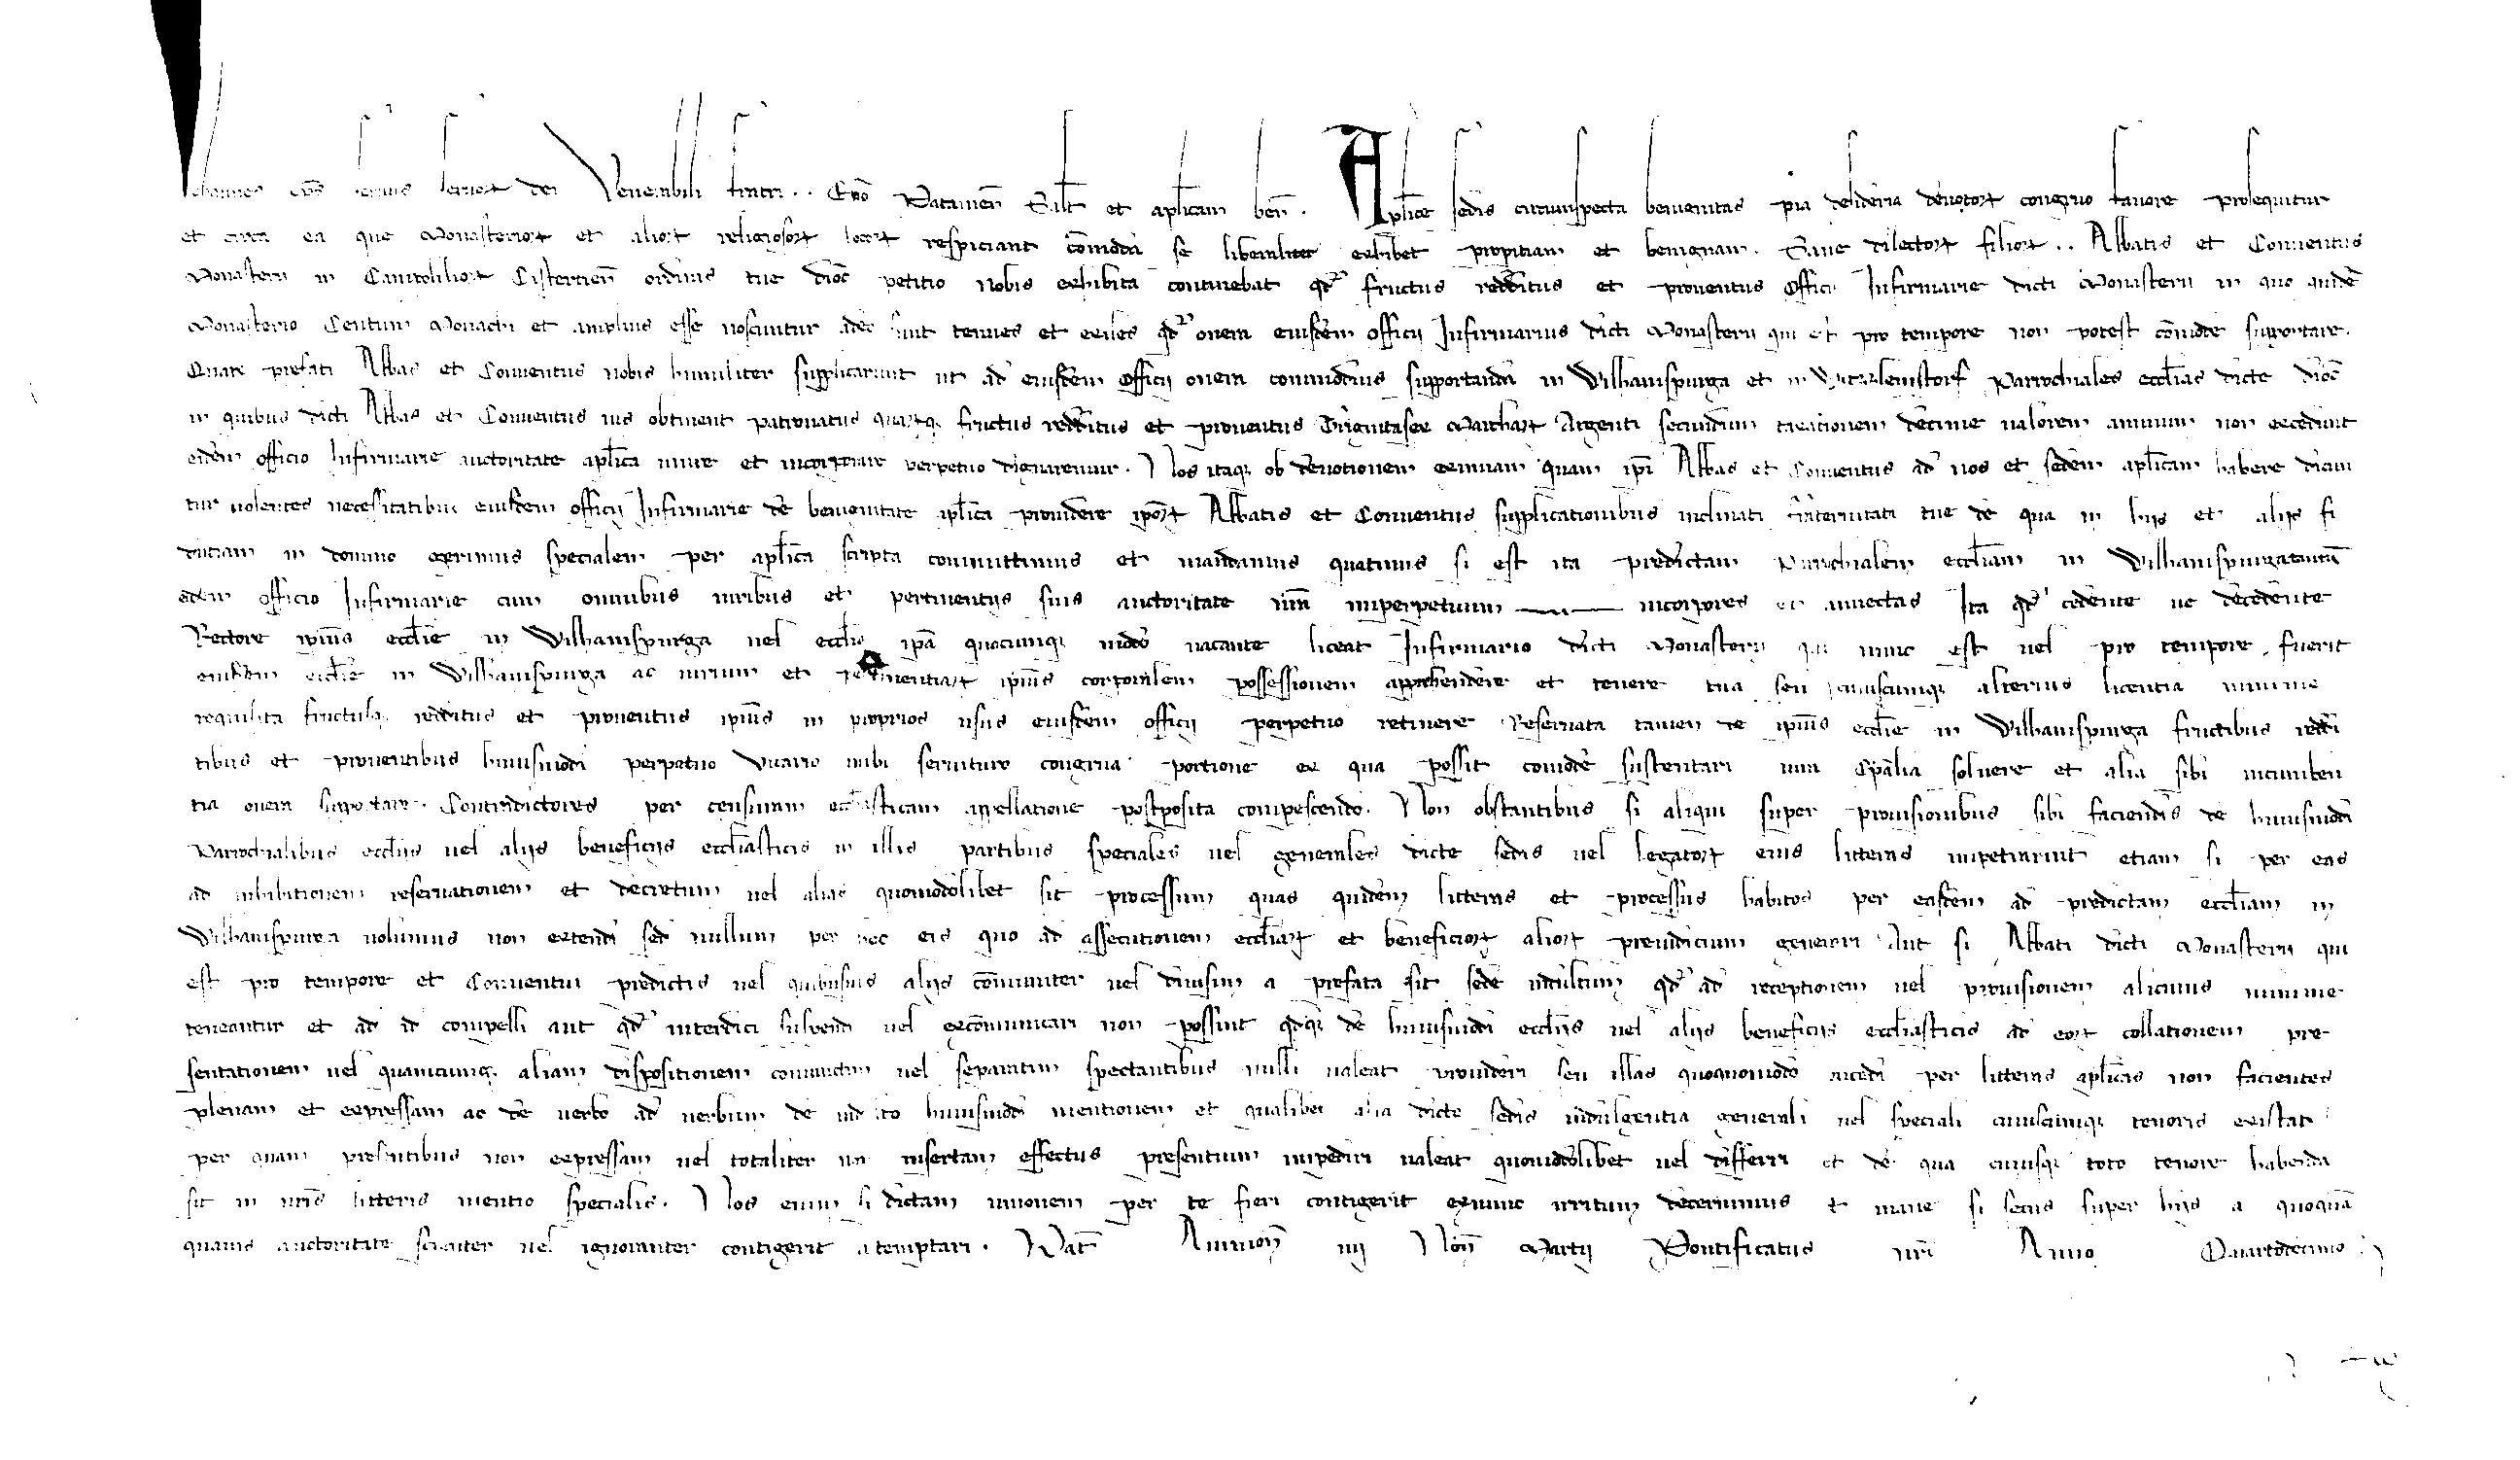 Johannes ep̄s seruus seruoꝝ dei Venerabili fratri .. Ep̄o Patauien̄ Salt̄ et apl̄icam ben̄ . Apl̄ice sedis circumspecta benignitas pia desideria deuotoꝝ congruo fauore prosequitur
et circa ea que Monasterioꝝ et alioꝝ religiosoꝝ locoꝝ respiciant com̄oda se liberaliter exhibet propitiam et benignam . Sane dilectoꝝ filioꝝ .. Abbatis et Conuentus
Monasterii in CampoliliOꝝ Cistercien̄ ordinis tue dioc̄ petitio nobis exhibita continebat qd̄ fructus redditus et prouentus Officii Infirmarie dicti Monasterii in quo quidē
Monasterio Centum Monachi et amplius esse noscuntur adeo sunt tenues et exiles qd̄ onera eiusdem officii Infirmarius dicti Monasterii qui est pro tempore non potest com̄ode supportare .
Quare prefati Abbas et Conuentus nobis humiliter supplicarunt ut ad eiusdem Officii onera commodius supportanda in Wilhamspurga et in Parrochiales ecclīas dicte dioc̄
in quibus dicti Abbas et Conuentus ius obtinent patronatus quarꝝqꝫ fructus redditus et prouentus Trigintasex Marchaꝝ Argenti secundum taxationem decime ualorem annuum non excedunt
eidem officio Infirmarie auctoritate apl̄ica unire et incorporare perpetuo dignaremur . Nos itaqꝫ ob deuotionem eximiam quam ip̄i Abbas et Conuentus ad nos et sedem apl̄icam habere dicun
tur uolentes necessitatibus eiusdem officii Infirmarie de benignitate apl̄ica prouidere ip̄oꝝ Abbatis et Conuentus supplicationibus inclinati fraternitati tue de qua in hijs et alijs fi
duciam in domino gerimus specialem per apl̄ica scripta committimus et mandamus quatinus si est ita predictam Parrochialem ecclīam in Wilhamspurga tantū
eidem officio Infirmarie cum omnibus iuribus et pertinentijs suis auctoritate nr̄a imperpetuum incorpores et annectas Ita qd̄ cedente uel decedente
Rectore ip̄ius ecclīe in Wilhamspurga uel ecclīa ip̄a quocumqꝫ modo uacante liceat Infirmario dicti Monasterii qui nunc est uel pro tempore fuerit
eiusdem ecclīe in Wilhamspurga ac iurium et pertinentiaꝝ ip̄ius corporalem possessionem apprehendere et tenere tua seu cuiuscumqꝫ alterius licentia minime
requisita fructusqꝫ redditus et prouentus ip̄ius in proprios usus eiusdem officii perpetuo retinere Reseruata tamen de ip̄ius ecclīe in Wilhamspurga fructibus reddi
tibus et prouentibus huiusmodi perpetuo Vicario inibi seruituro congrua portione ex qua possit com̄ode sustentari iura Ep̄alia soluere et alia sibi incumben
tia onera supportare . Contradictores per censuram ecclīasticam appellatione postposita compescendo . Non obstantibus si aliqui super prouisionibus sibi faciendis de huiusmodi
Parrochialibus ecclījs uel alijs beneficijs ecclīasticis in illis partibus speciales uel generales dicte sedis uel legatoꝝ eius litteras impetrarint etiam si per eas
ad inhibitionem reseruationem et decretum uel alias quomodolibet sit processum quas quidem litteras et processus habitos per easdem ad predictam ecclīam in
Wilhamspurga uolumus non extendi sed nullum per hoc eis quo ad assecutionem ecclīaꝝ et beneficioꝝ alioꝝ preiudicium generari Aut si Abbati dicti Monasterii qui
est pro tempore et Conuentui predictis uel quibusuis alijs com̄uniter uel diuisim a prefata sit sede indultum qd̄ ad receptionem uel prouisionem alicuius minime
teneantur et ad id compelli aut qd̄ interdici suspendi uel excom̄unicari non possint qd̄qꝫ de huiusmodi ecclījs uel alijs beneficijs ecclīasticis ad eoꝝ collationem pre
sentationem uel quamcumqꝫ aliam dispositionem coniunctim uel separatim spectantibus nulli ualeat prouideri seu illas quoquomodo accedi per litteras apl̄icas non facientes
plenam et expressam ac de uerbo ad uerbum de indulto huiusmodi mentionem et qualibet alia dicte sedis indulgentia generali uel speciali cuiuscumqꝫ tenoris existat
per quam presentibus non expressam uel totaliter non insertam effectus presentium impediri ualeat quomodolibet uel differri et de qua cuiusqꝫ toto tenore habenda
sit in nr̄is litteris mentio specialis . Nos enim si dictam unionem per te fieri contigerit exnunc irritum decernimus et inane si secus super hijs a quoquā
quauis auctoritate scienter uel ignoranter contigerit attemptari . Dat̄ Auinion̄ iiij Non̄ Martij Pontificatus nr̄i Anno Quartodecimo